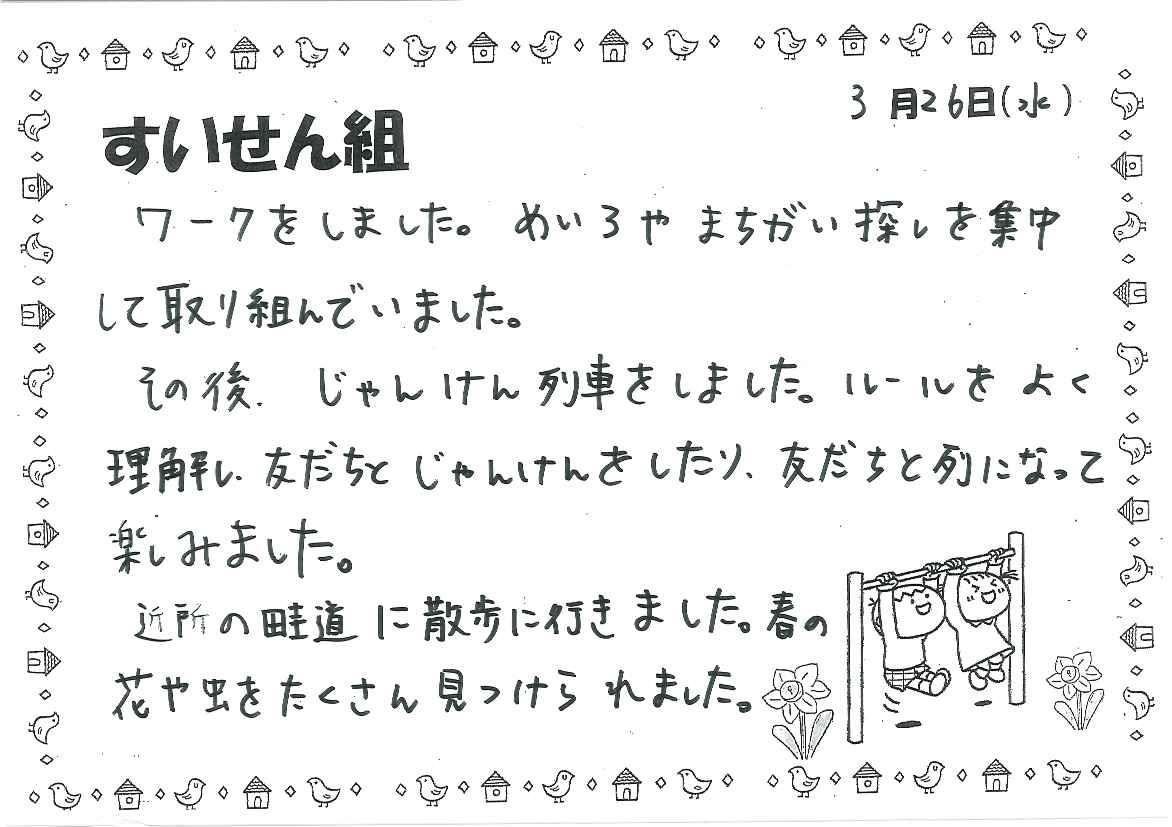 3月26日(水)
すいせん組
ワークをしました。めいろやまちがい探しを集中
して取り組んでいました。
その後、じゃんけん列車をしました。ルールをよく
理解し、友だちとじゃんけんをしたり、友だちと列になって
楽しみました。
近所の畦道に散歩に行きました。春の
花や虫をたくさん見つけられました。